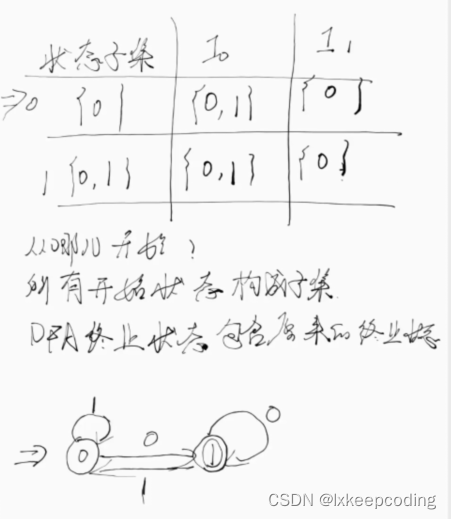 状态子集 I₀ I₁
⇒0 {0} {0,1} {0}
1 {0,1} {0,1} {0}
从哪儿开始?
所有开始状态构成子集
DFA终止状态包含原来的终止状态
1 0 0
⇒ 0 1
1
CSDN @lxkeepcoding